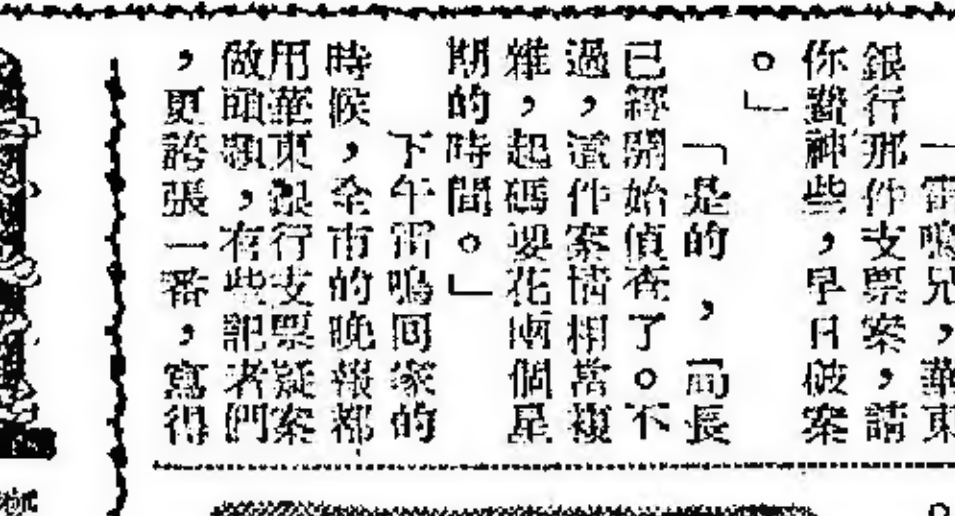 「雷鳴兄，華東
銀行那件支票案，請
你費神些，早日破案
。」
「是的，局長
已經開始偵查了。不
過，這件案情相當複
雜，起碼要花兩個星
期的時間。」
下午雷鳴回家的
時候，全市的晚報都
用華東銀行支票疑案
做頭題，有些記者們
，更誇張一番，寫得